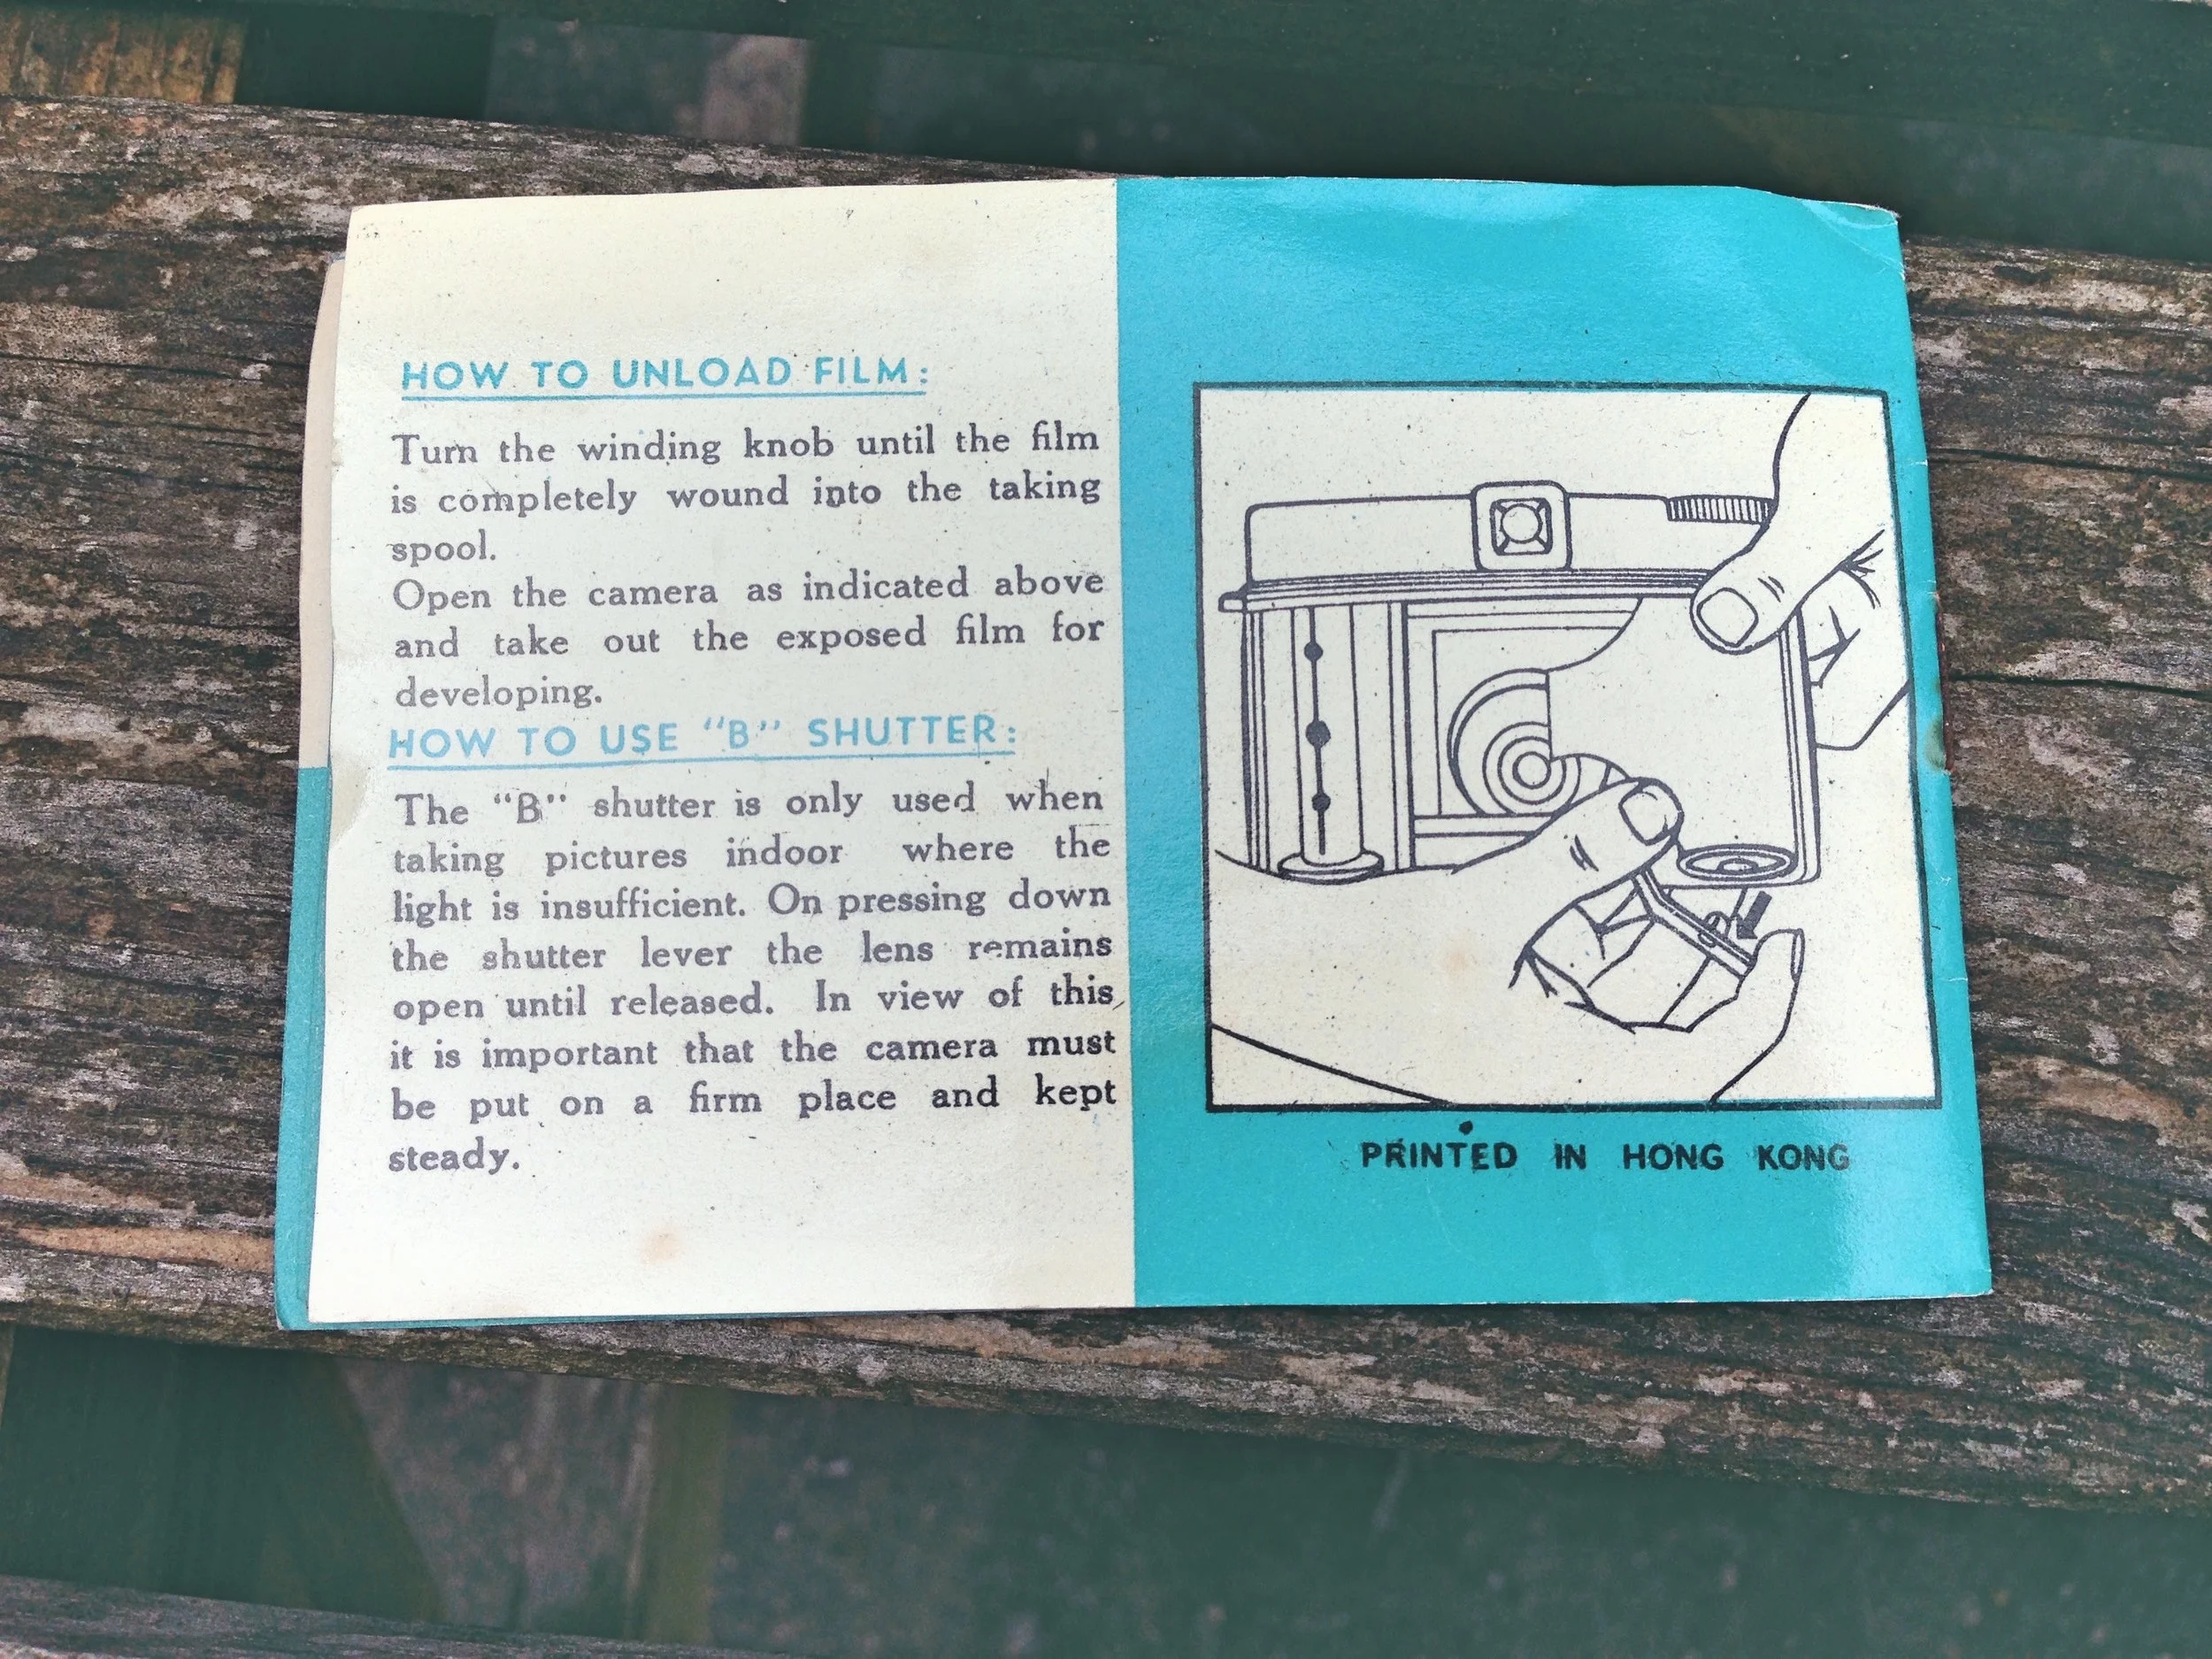 HOW TO UNLOAD FILM:
Turn the winding knob until the film
is completely wound into the taking
spool.
Open the camera as indicated above
and take out the exposed film for
developing.
HOW TO USE "B" SHUTTER:
The "B" shutter is only used when
taking pictures indoor where the
light is insufficient. On pressing down
the shutter lever the lens remains
open until released. In view of this
it is important that the camera must
be put on a firm place and kept
steady.
PRINTED IN HONG KONG